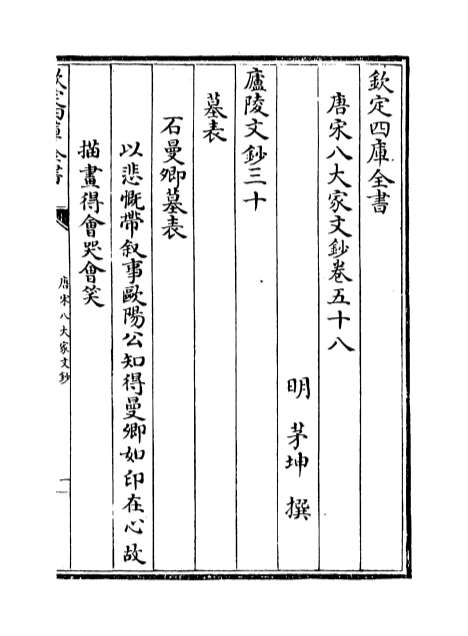 欽定四庫全書
唐宋八大家文鈔卷五十八
明 茅坤 撰
廬陵文鈔三十
墓表
石曼卿墓表
以悲慨帶叙事歐陽公知得曼卿如印在心故
描畫得會哭會笑
欽定四庫全書
唐宋八大家文鈔
一